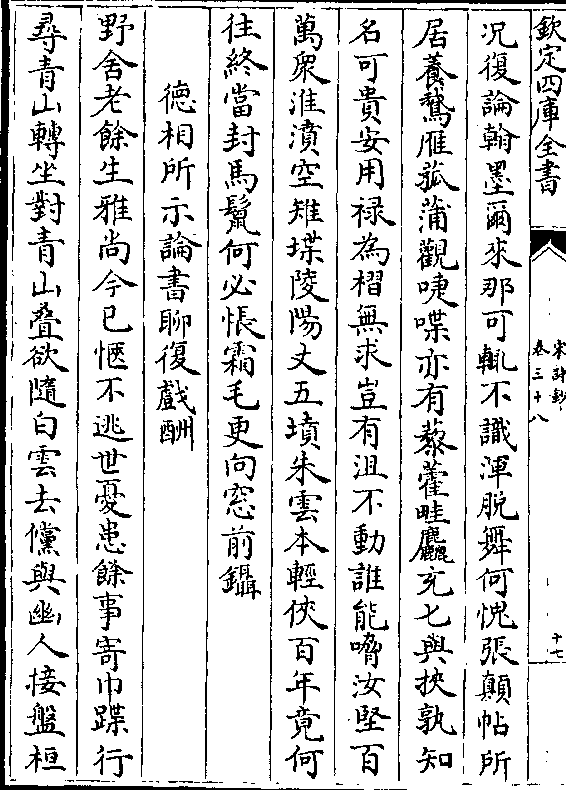 欽定四庫全書
宋詩鈔
卷三十八
十七
况復論翰墨爾來那可輒不識渾脱舞何愧張顛帖所
居養鵞雁菰蒲觀唼喋亦有藜藿畦麤充匕與挾孰知
名可貴安用禄為榴無求豈有沮不動誰能嚼汝堅百
萬衆淮濆空雉堞陵陽丈五墳朱雲本輕俠百年竟何
往終當封馬鬛何必悵霜毛更向窓前鑷
德相所示論書聊復戯酬
野舍老餘生雅尚今已愜不逃世憂患餘事寄巾蹀行
尋青山轉坐對青山疊欲隨白雲去儻與幽人接盤桓